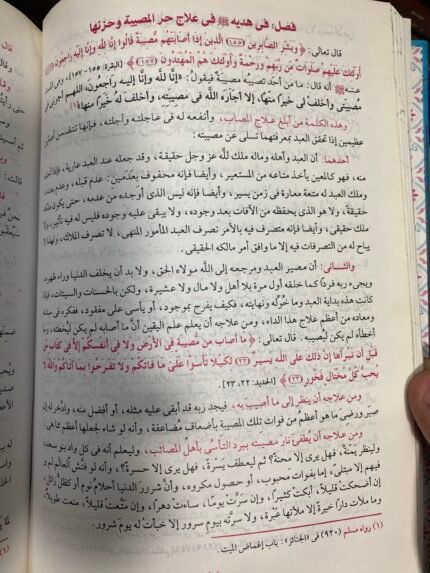 فصل: فى هديه ﷺ فى علاج حَرِّ المصيبة وحزنها
قال تعالى: ﴿وبَشِّرِ الصابرين (١٥٥) الَّذين إذا أَصَابَتْهُم مُّصِيبَةٌ قَالُوا إنَّا للَّه وإنَّا إليه رَاجِعُونَ (١٥٦)
أولئك عليهم صلَوَاتٌ من رَّبِّهِمْ ورَحْمَةٌ وأولئك هُمُ المهْتدون (١٥٧)﴾ [البقرة: ١٥٥-١٥٧]. وفى المسند
عنه ﷺ أنه قال: «ما من أحد تصيبُه مصيبةٌ فيقولُ: «إنَّا للَّه وإنَّا إليه رَاجعون، اللهم أجرنى فى
مصيبتى وأخلف لى خيرًا منها، إلا أجَارَه اللَّه فى مصيبته، وأخلف له خَيرًا منها»(١)
وهذه الكلمة من أبلغ علاج المصاب، وأنفعه له فى عاجلته وآجلته، فإنها تتضمن أصلين
عظيمين إذا تحقق العبد بمعرفتهما تسلى عن مصيبته:
أحدهما: أن العبد وأهله وماله ملك للَّه عز وجل حقيقة، وقد جعله عند العبد عارية، فإذا أخذه
منه، فهو كالمعير يأخذ متاعه من المستعير، وأيضا فإنه محفوف بعَدَمين: عدم قبله، وعدم بعده،
وملك العبد له متعة معارة فى زمن يسير، وأيضا فإنه ليس الذى أوجده من عدمه، حتى يكون ملكه
حقيقةً، ولا هو الذى يحفظه من الآفات بعد وجوده، ولا يبقى عليه وجوده فليس له فيه تأثير، ولا
ملك حقيقى، وأيضا فإنه متصرف فيه بالأمر تصرف العبد المأمور المنهى، لا تصرف الملاك، ولهذا لا
يباح له من التصرفات فيه إلا ما وافق أمر مالكه الحقيقى.
والثانى: أن مصير العبد ومرجعه إلى اللَّه مولاه الحق، ولا بد أن يخلف الدنيا وراء ظهره،
ويجىء ربه فردًا كما خلقه أول مرة بلا أهل ولا مال ولا عشيرة، ولكن بالحسنات والسيئات، فإذا
كانت هذه بداية العبد وما خُوِّله ونهايته، فكيف يفرح بموجود، أو يأسى على مفقود، ففكره فى مبدئه
ومعاده من أعظم علاج هذا الداء، ومن علاجه أن يعلم علم اليقين أنَّ ما أصابه لم يكن ليُخطئه، وما
أخطأه لم يكن ليُصيبه. قال تعالى: ﴿مَا أصابَ من مصيبَةٍ فى الأرْضِ ولا فى أنفسكُمْ إلا فى كتابٍ مِّن
قَبل أن نَبرأهَا إنَّ ذلك على اللَّه يسيرٌ (٢٢) لكيلا تأسَوْا على مَا فاتكُمْ ولا تَفرَحوا بما آتاكُمْ واللَّه لا
يحبُّ كلَّ مُختَالٍ فخورٍ (٢٣)﴾ [الحديد: ٢٢، ٢٣].
ومن علاجه أن ينظر إلى ما أصيب به، فيجد ربه قد أبقى عليه مثله، أو أفضل منه، وادّخر له إن
صبر ورضى ما هو أعظمُ من فوات تلك المصيبة بأضعاف مضاعفة، وأنه لو شاء لجعلها أعظم مما هى.
ومن علاجه أن يُطفئ نارَ مصيبته ببرد التأسى بأهل المصائب، وليعلم أنه فى كل واد بنو سعد،
ولينظر يَمْنَة، فهل يرى إلا محنةً؟ ثم ليعطف يَسرة، فهل يرى إلا حسرةً؟، وأنه لو فتَّش العالَم لم ير
فيهم إلا مبتلىً، إما بفوات محبوب، أو حصول مكروه، وأنَّ شرورَ الدنيا أحلامُ نوم أو كظلٍّ زائل،
إن أضحكتْ قليلًا، أبكتْ كثيرًا، وإن سَرَّتْ يومًا، ساءتْ دهرًا، وإن متَّعتْ قليلًا، منعت طويلًا،
وما ملأت دارًا خيرةً إلا ملأتها عَبْرة، ولا سرَّته بيومِ سرورٍ إلا خبأتْ له يومَ شرور.
(١) رواه مسلم (٩٢٠) فى «الجنائز»: باب إغماض الميت.